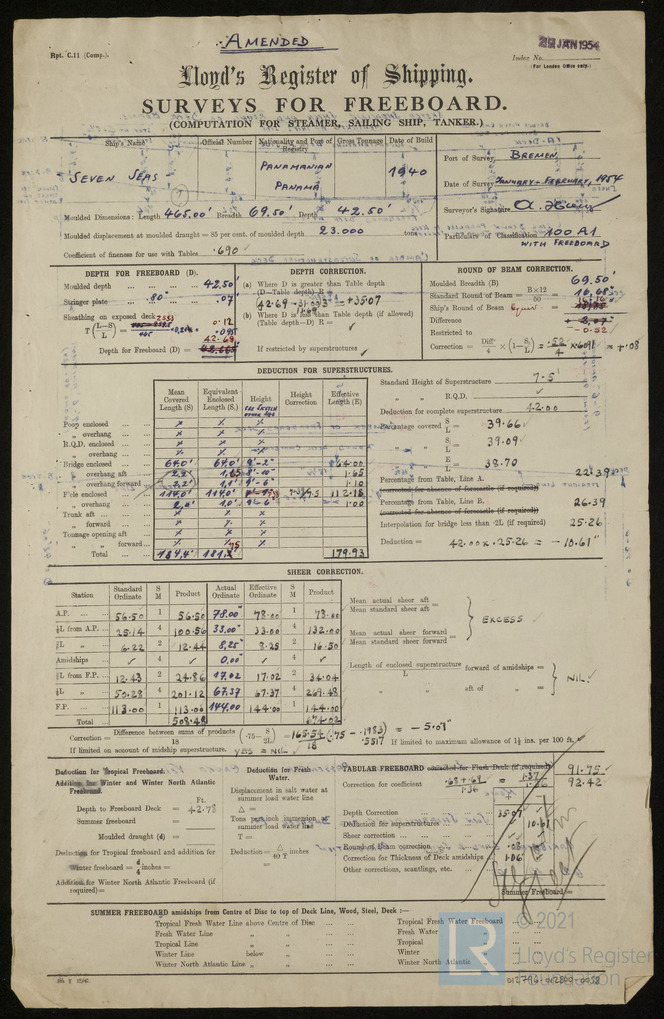 AMENDED
Rpt. C.11 (Comp.).
29 JAN 1954
Index No.
(For London Office only.)
Lloyd's Register of Shipping.
SURVEYS FOR FREEBOARD.
(COMPUTATION FOR STEAMER, SAILING SHIP, TANKER.)
Ship's Name Official Number Nationality and Port of Registry Gross Tonnage Date of Build
SEVEN SEAS PANAMANIAN PANAMA 1940
Port of Survey BREMEN
Date of Survey JANUARY - FEBRUARY, 1954
Surveyor's Signature
Particulars of Classification 100 A1 WITH FREEBOARD
Moulded Dimensions: Length 465.00' Breadth 69.50' Depth 42.50'
Moulded displacement at moulded draught = 85 per cent. of moulded depth 23.000 tons
Coefficient of fineness for use with Tables .690
DEPTH FOR FREEBOARD (D).
Moulded depth 42.50'
Stringer plate .80" .07'
Sheathing on exposed deck
T (L-S/L) =
0.12
Depth for Freeboard (D) = 42.69
DEPTH CORRECTION.
(a) Where D is greater than Table depth
(D—Table depth) R =
(b) Where D is less than Table depth (if allowed)
(Table depth—D) R =
If restricted by superstructures
ROUND OF BEAM CORRECTION.
Moulded Breadth (B) 69.50'
Standard Round of Beam = B×12/50 = 16.68"
Ship's Round of Beam =
Difference
Restricted to -0.52
Correction = Diff/4 × (1-S₁/L) = .52/4 × .6091 = +.08
DEDUCTION FOR SUPERSTRUCTURES.
Mean Covered Length (S) Equivalent Enclosed Length (S₁) Height Height Correction Effective Length (E)
Poop enclosed
„ overhang
R.Q.D. enclosed
„ overhang
Bridge enclosed 64.0' 64.0' 9'-2" 64.00
„ overhang aft 1.65
„ overhang forward 2.2' 1.1' 9'-6" 1.10
F'cle enclosed 114.0' 114.0' 112.18
„ overhang 2.0' 1.0' 9'-6" 1.00
Trunk aft
„ forward
Tonnage opening aft
„ „ forward
Total 184.4' 179.93
Standard Height of Superstructure 7.5'
„ „ R.Q.D.
Deduction for complete superstructure 42.00
Percentage covered S/L = 39.66
„ S₁/L = 39.09
„ E/L = 38.70
Percentage from Table, Line A. 22.39
(corrected for absence of forecastle (if required))
Percentage from Table, Line B. 26.39
(corrected for absence of forecastle (if required))
Interpolation for bridge less than ·2L (if required) 25.26
Deduction = 42.00 x .25.26 = - 10.61"
SHEER CORRECTION.
Station Standard Ordinate S M Product Actual Ordinate Effective Ordinate S M Product
A.P. 56.50 1 56.50 78.00" 78.00 1 78.00
⅙L from A.P. 25.14 4 100.56 33.00" 33.00 4 132.00
⅓L „ 6.22 2 12.44 8.25" 8.25 2 16.50
Amidships 4 0.00" 4
⅓L from F.P. 12.43 2 24.86 17.02 17.02 2 34.04
⅙L „ 50.28 4 201.12 67.37 67.37 4 269.48
F.P. 113.00 1 113.00 144.00 144.00 1 144.00
Total 508.48 674.02
Mean actual sheer aft
Mean standard sheer aft =
Mean actual sheer forward
Mean standard sheer forward =
EXCESS
Length of enclosed superstructure forward of amidships =
L
„ „ aft of „ =
NIL
Correction = Difference between sums of products/18 (·75 - S/2L) = 165.54/18 (.75 - .1983) = - 5.07"
.5517
If limited on account of midship superstructure. YES = NIL
If limited to maximum allowance of 1½ ins. per 100 ft.
Deduction for Tropical Freeboard.
Addition for Winter and Winter North Atlantic Freeboard.
Ft.
Depth to Freeboard Deck = 42.78
Summer freeboard =
Moulded draught (d) =
Deduction for Tropical freeboard and addition for
Winter freeboard = d/4 inches =
Addition for Winter North Atlantic Freeboard (if required) =
Deduction for Fresh Water.
Displacement in salt water at summer load water line
Δ =
Tons per inch immersion at summer load water line
T =
Deduction = Δ/40 T inches =
TABULAR FREEBOARD corrected for Flush Deck (if required) 91.75
Correction for coefficient .68+.69/1.36 = 1.37/1.36 92.42
+ -
Depth Correction 35.07
Deduction for superstructures 10.61
Sheer correction
Round of Beam correction .08
Correction for Thickness of Deck amidships 1.06
Other corrections, scantlings, etc.
Summer Freeboard =
SUMMER FREEBOARD amidships from Centre of Disc to top of Deck Line, Wood, Steel, Deck :—
Tropical Fresh Water Line above Centre of Disc
Fresh Water Line „ „
Tropical Line „ „
Winter Line below „
Winter North Atlantic Line „ „
Tropical Fresh Water Freeboard
Fresh Water „
Tropical „
Winter „
Winter North Atlantic „
© 2021
LR
Lloyd's Register
Foundation
012796-012800-0058